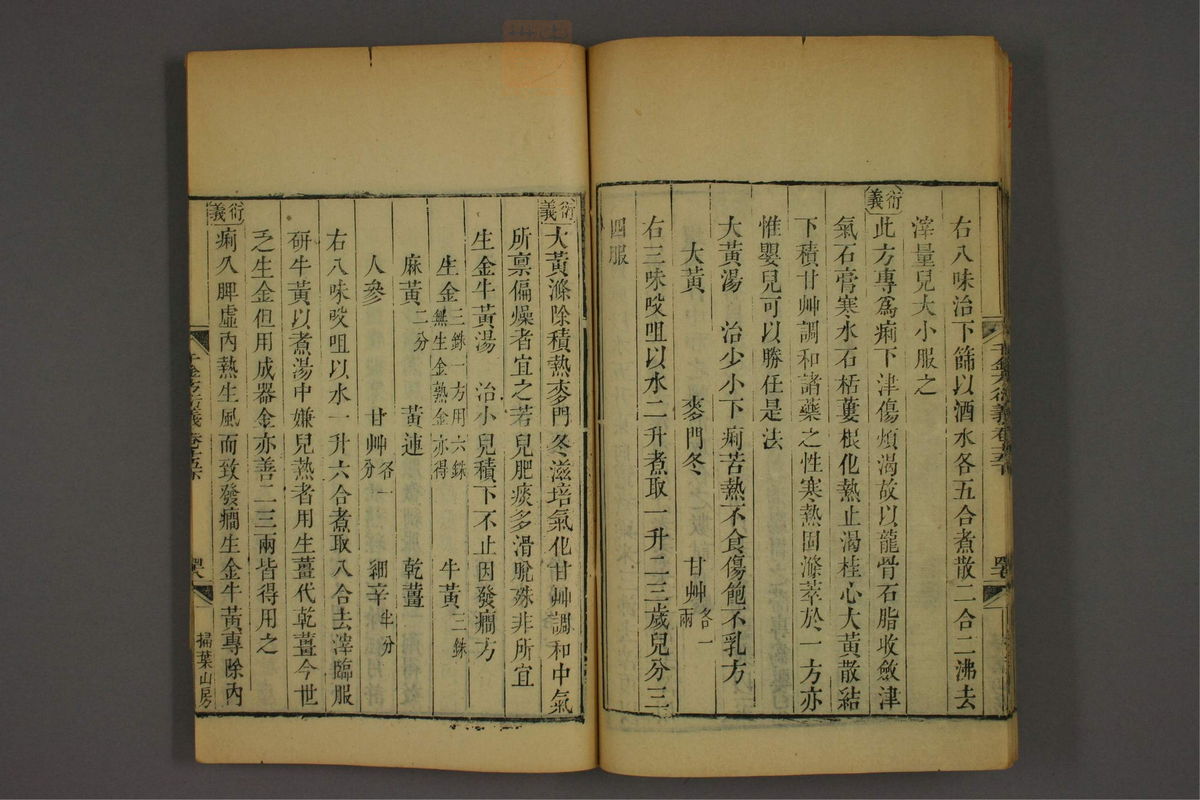 右八味治下篩以酒水各五合煮散二合二沸去
滓量兒大小服之
衍義
此方專爲痢下津傷煩渴故以龍骨石脂收斂津
氣石膏寒水石栝蔞根化熱止渴桂心大黃散結
下積甘艸調和諸藥之性寒熱固滌萃於一方亦
惟嬰兒可以勝任是法
大黃湯 治少小下痢苦熱不食傷飽不乳方
大黃 麥門冬 甘艸各一兩
右三味㕮咀以水二升煮取一升二三歲兒分三
四服
衍義
大黃滌除積熱麥門冬滋培氣化甘艸調和中氣
所禀偏燥者宜之若兒肥痰多滑脫殊非所宜
生金牛黃湯 治小兒積下不止因發癇方
生金三銖一方用六銖無生金熟金亦得 牛黃三銖
麻黃二分 黃連 乾薑
人參 甘艸各一分 細辛半分
右八味㕮咀以水一升六合煮取八合去滓臨服
研牛黃以煮湯中嫌兒熱者用生薑代乾薑今世
乏生金但用成器金亦善二三兩皆得用之
衍義
痢久脾虛內熱生風而致發癇生金牛黃專除內
千金方衍義卷
掃葉山房